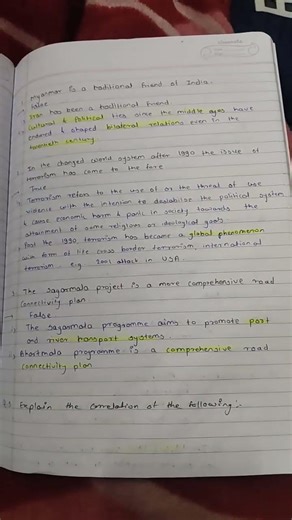 Myanmar is a traditional friend of India.
→ False
1) Iran has been a traditional friend
2) Cultural & Political ties since the middle ages have
endured & shaped bilateral relations even in the
twentieth century.
In the changed world system after 1990 the issue of
terrorism has come to the fore
→ True
Terrorism refers to the use of or the threat of use
violence with the intention to destabilise the political system
& cause economic harm & panic in society towards the
attainment of some religious or ideological goals.
Post the 1990 terrorism has became a global phenomenon
in a form of life cross border terrorism, international
terrorism. e.g. attack in USA
The Sagarmala project is a more comprehensive road
connectivity plan
→ False
The Sagarmala programme aims to promote port
and river transport systems.
Bharitmala programme is a comprehensive road
connectivity plan
Explain the correlation of the following:-